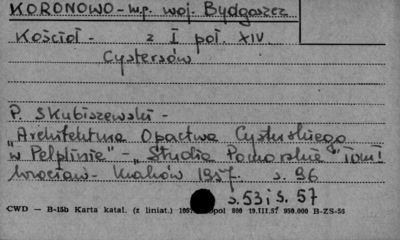 KORONOWO - w.p. woj. Bydgoszcz
Kościół - z I poł. XIV.
Cystersów
P. Skubiszewski -
"Architektura Opactwa Cysterskiego
w Pelplinie" - "Studia Pomorskie" Tom I
Wrocław - Kraków 1957. s. 96
s. 53 i s. 57
CWD — B-15b Karta katal. (z liniat.) 800 19.III.57 950.000 B-ZS-56